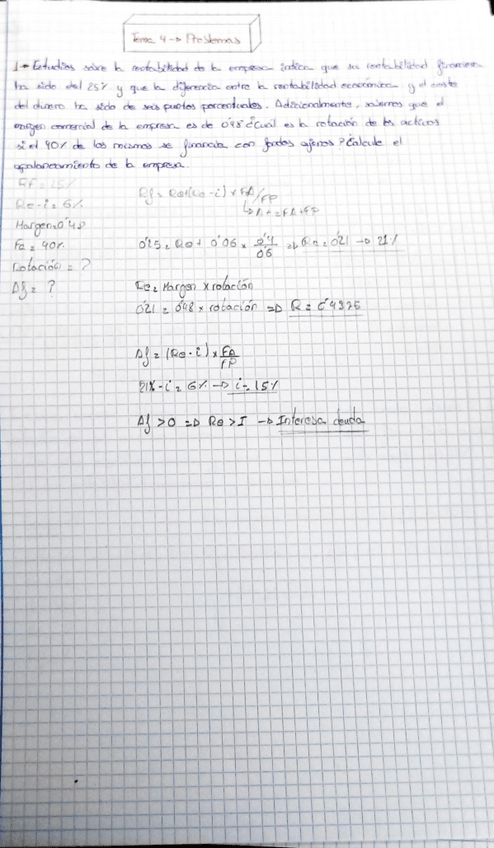 Tema 4 → Problemas
1- Estudios sobre la rentabilidad de la empresa indica que su rentabilidad financiera
ha sido del 25% y que la diferencia entre la rentabilidad económica y el coste
del dinero ha sido de seis puntos porcentuales. Adicionalmente, sabemos que el
margen comercial de la empresa es de 0'48 ¿Cuál es la rotación de los activos
si el 40% de los mismos se financia con fondos ajenos? Calcule el
apalancamiento de la empresa.
RF = 25%
Re-i = 6%
Margen = 0'48
Fa = 40%
Rotación = ?
Af = ?
Rf = Re+(Re-i) x FA/FP
↳ At = FA+FP
0'25 = Re + 0'06 x 0'4/0'6 => Re = 0'21 → 21%
Re = Margen x rotación
0'21 = 0'48 x rotación => R = 0'4375
Af = (Re-i) x FA/FP
21% - i = 6% → i = 15%
Af > 0 => Re > I → Interesa deuda